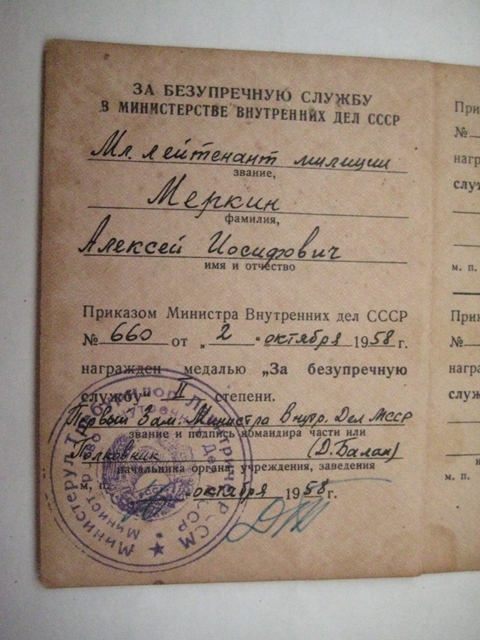 ЗА БЕЗУПРЕЧНУЮ СЛУЖБУ
В МИНИСТЕРСТВЕ ВНУТРЕННИХ ДЕЛ СССР
Мл. лейтенант милиции
звание,
Меркин
фамилия,
Алексей Иосифович
имя и отчество
Приказом Министра Внутренних дел СССР
№ 660 от „2" октября 1958 г.
награжден медалью „За безупречную
службу" II степени.
Первый Зам. Министра Внутр. Дел МССР
звание и подпись командира части или
Полковник (Д. Балан)
начальника органа, учреждения, заведения
м. п. октября 1958 г.
При
№
награ
слу
м. п.
При
№
нагр
служ
м. п.